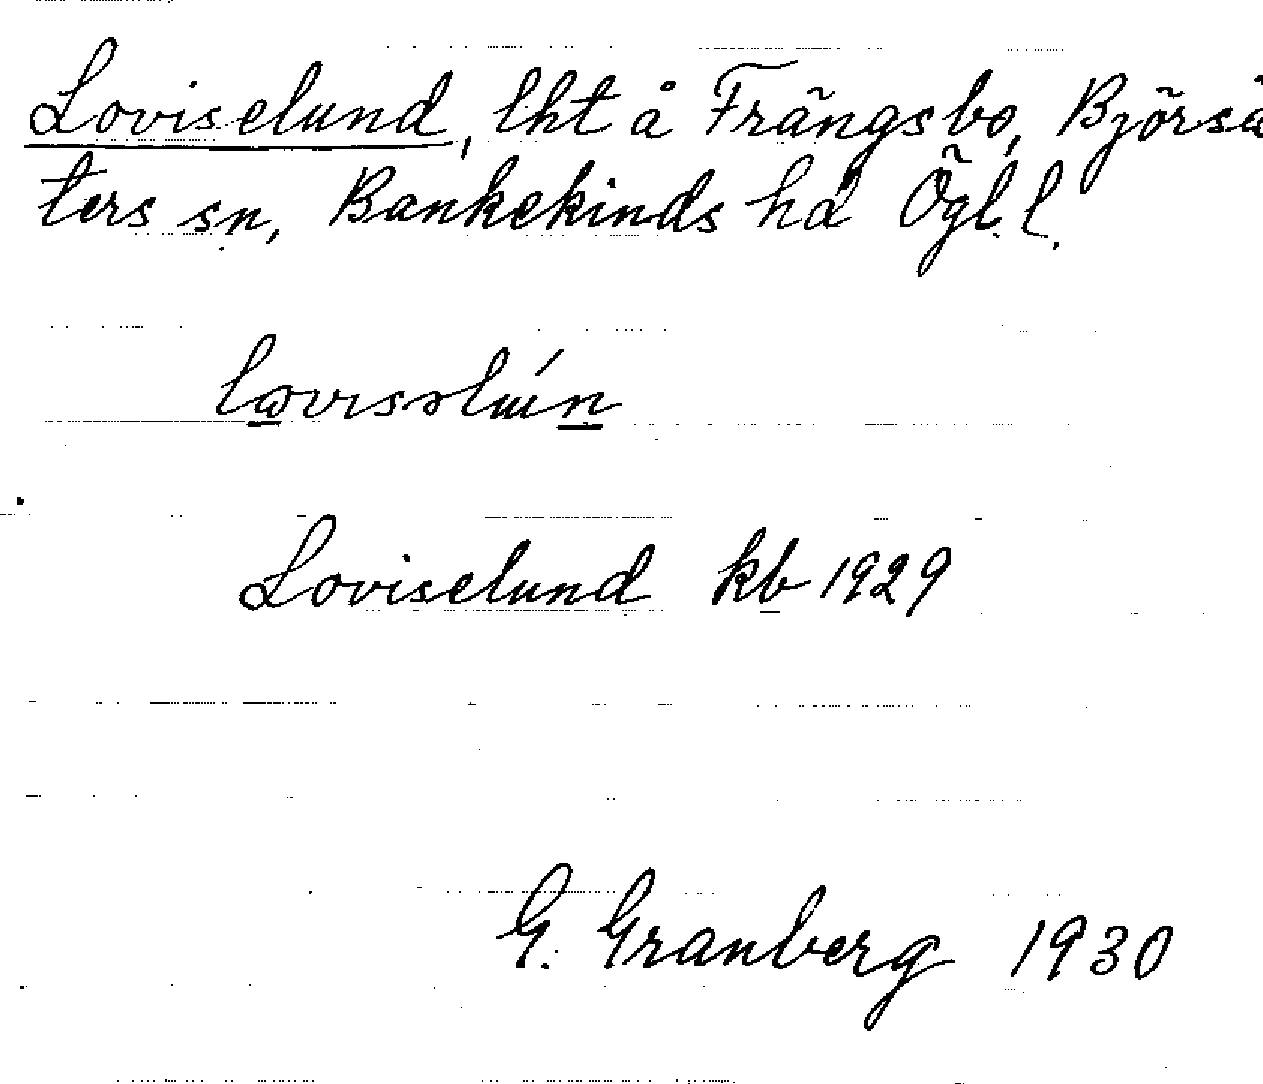 Loviselund, lht å Frängsbo, Björsä
ters sn, Bankekinds hd Ögl. l.
Loviselund kb 1929
G. Granberg 1930